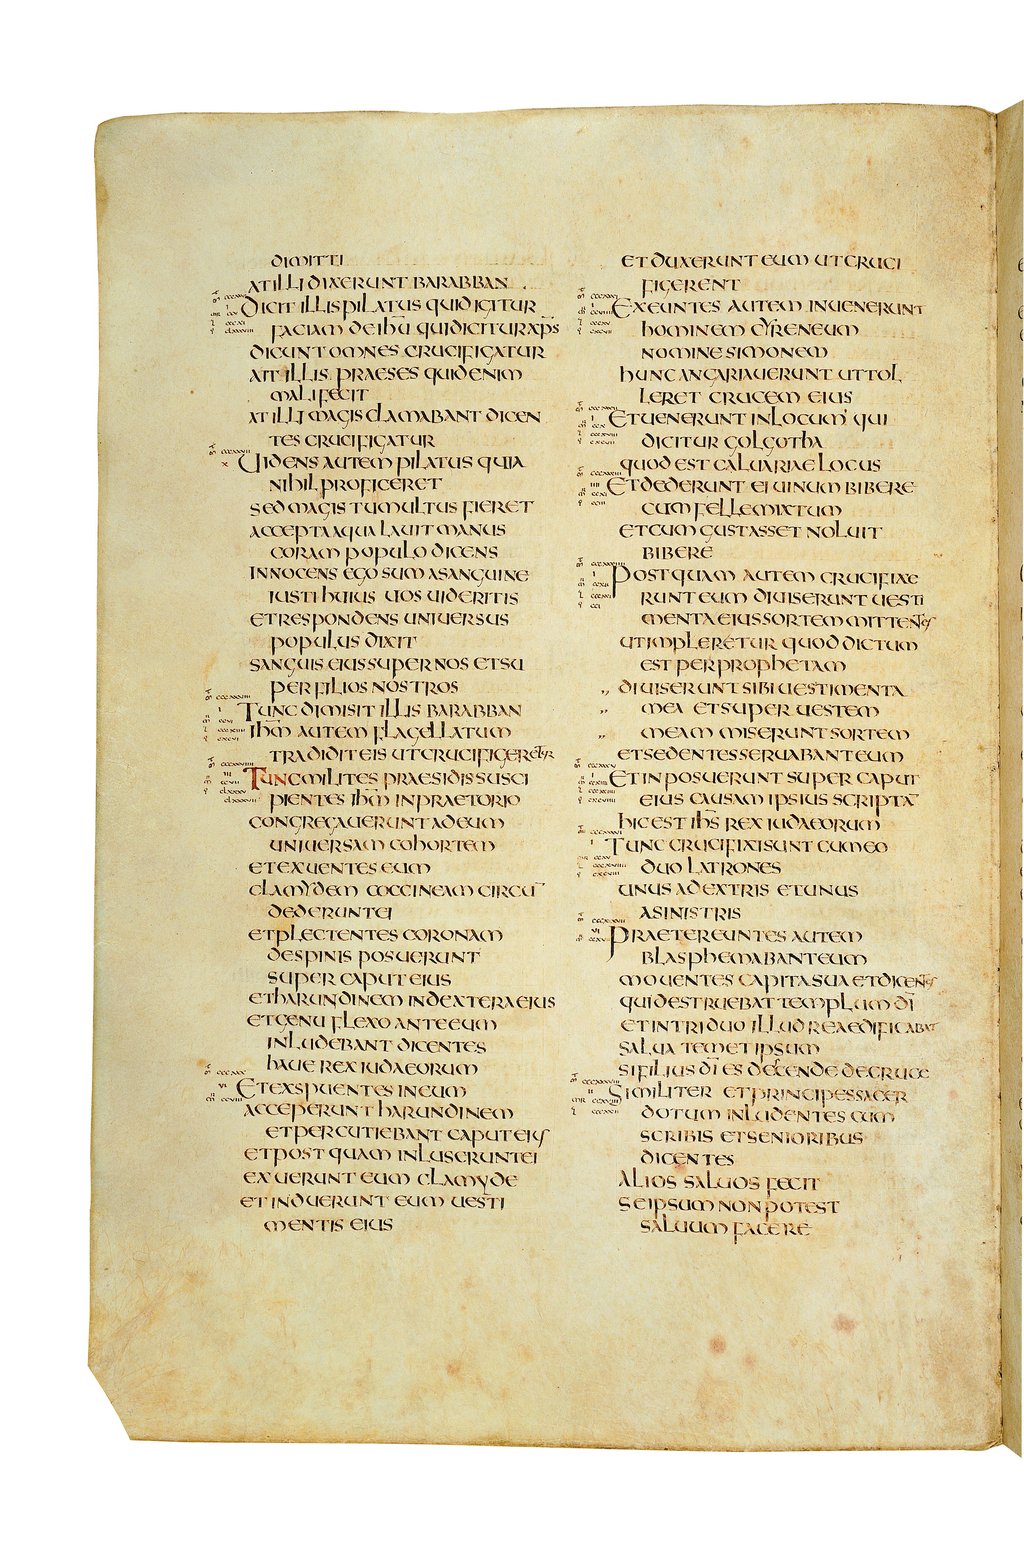 DIMITTI
AT ILLI DIXERUNT BARABBAN
DICIT ILLIS PILATUS QUID IGITUR
FACIAM DE IHU QUI DICITUR XPS
DICUNT OMNES CRUCIFIGATUR
AIT ILLIS PRAESES QUID ENIM
MALI FECIT
AT ILLI MAGIS CLAMABANT DICEN
TES CRUCIFIGATUR
UIDENS AUTEM PILATUS QUIA
NIHIL PROFICERET
SED MAGIS TUMULTUS FIERET
ACCEPTA AQUA LAUIT MANUS
CORAM POPULO DICENS
INNOCENS EGO SUM A SANGUINE
IUSTI HUIUS UOS UIDERITIS
ET RESPONDENS UNIUERSUS
POPULUS DIXIT
SANGUIS EIUS SUPER NOS ET SU
PER FILIOS NOSTROS
TUNC DIMISIT ILLIS BARABBAN
IHM AUTEM FLAGELLATUM
TRADIDIT EIS UT CRUCIFIGERETUR
TUNC MILITES PRAESIDIS SUSCI
PIENTES IHM IN PRAETORIO
CONGREGAUERUNT AD EUM
UNIUERSAM COHORTEM
ET EXUENTES EUM
CLAMYDEM COCCINEAM CIRCU̅
DEDERUNT EI
ET PLECTENTES CORONAM
DE SPINIS POSUERUNT
SUPER CAPUT EIUS
ET HARUNDINEM IN DEXTERA EIUS
ET GENU FLEXO ANTE EUM
INLUDEBANT DICENTES
HAUE REX IUDAEORUM
ET EXSPUENTES IN EUM
ACCEPERUNT HARUNDINEM
ET PERCUTIEBANT CAPUT EIUS
ET POSTQUAM INLUSERUNT EI
EXUERUNT EUM CLAMYDE
ET INDUERUNT EUM UESTI
MENTIS EIUS
ET DUXERUNT EUM UT CRUCI
FIGERENT
EXEUNTES AUTEM INUENERUNT
HOMINEM CYRENEUM
NOMINE SIMONEM
HUNC ANGARIAUERUNT UT TOL
LERET CRUCEM EIUS
ET UENERUNT IN LOCUM QUI
DICITUR GOLGOTHA
QUOD EST CALUARIAE LOCUS
ET DEDERUNT EI UINUM BIBERE
CUM FELLE MIXTUM
ET CUM GUSTASSET NOLUIT
BIBERE
POSTQUAM AUTEM CRUCIFIXE
RUNT EUM DIUISERUNT UESTI
MENTA EIUS SORTEM MITTENTES
UT IMPLERETUR QUOD DICTUM
EST PER PROPHETAM
,, DIUISERUNT SIBI UESTIMENTA
,, MEA ET SUPER UESTEM
,, MEAM MISERUNT SORTEM
ET SEDENTES SERUABANT EUM
ET INPOSUERUNT SUPER CAPUT
EIUS CAUSAM IPSIUS SCRIPTA̅
HIC EST IHS REX IUDAEORUM
TUNC CRUCIFIXI SUNT CUM EO
DUO LATRONES
UNUS A DEXTRIS ET UNUS
A SINISTRIS
PRAETEREUNTES AUTEM
BLASPHEMABANT EUM
MOUENTES CAPITA SUA ET DICENTES
QUI DESTRUEBAT TEMPLUM DI̅
ET IN TRIDUO ILLUD REAEDIFICABAT
SALUA TEMET IPSUM
SI FILIUS DI̅ ES DESCENDE DE CRUCE
SIMILITER ET PRINCIPES SACER
DOTUM INLUDENTES CUM
SCRIBIS ET SENIORIBUS
DICENTES
ALIOS SALUOS FECIT
SE IPSUM NON POTEST
SALUUM FACERE